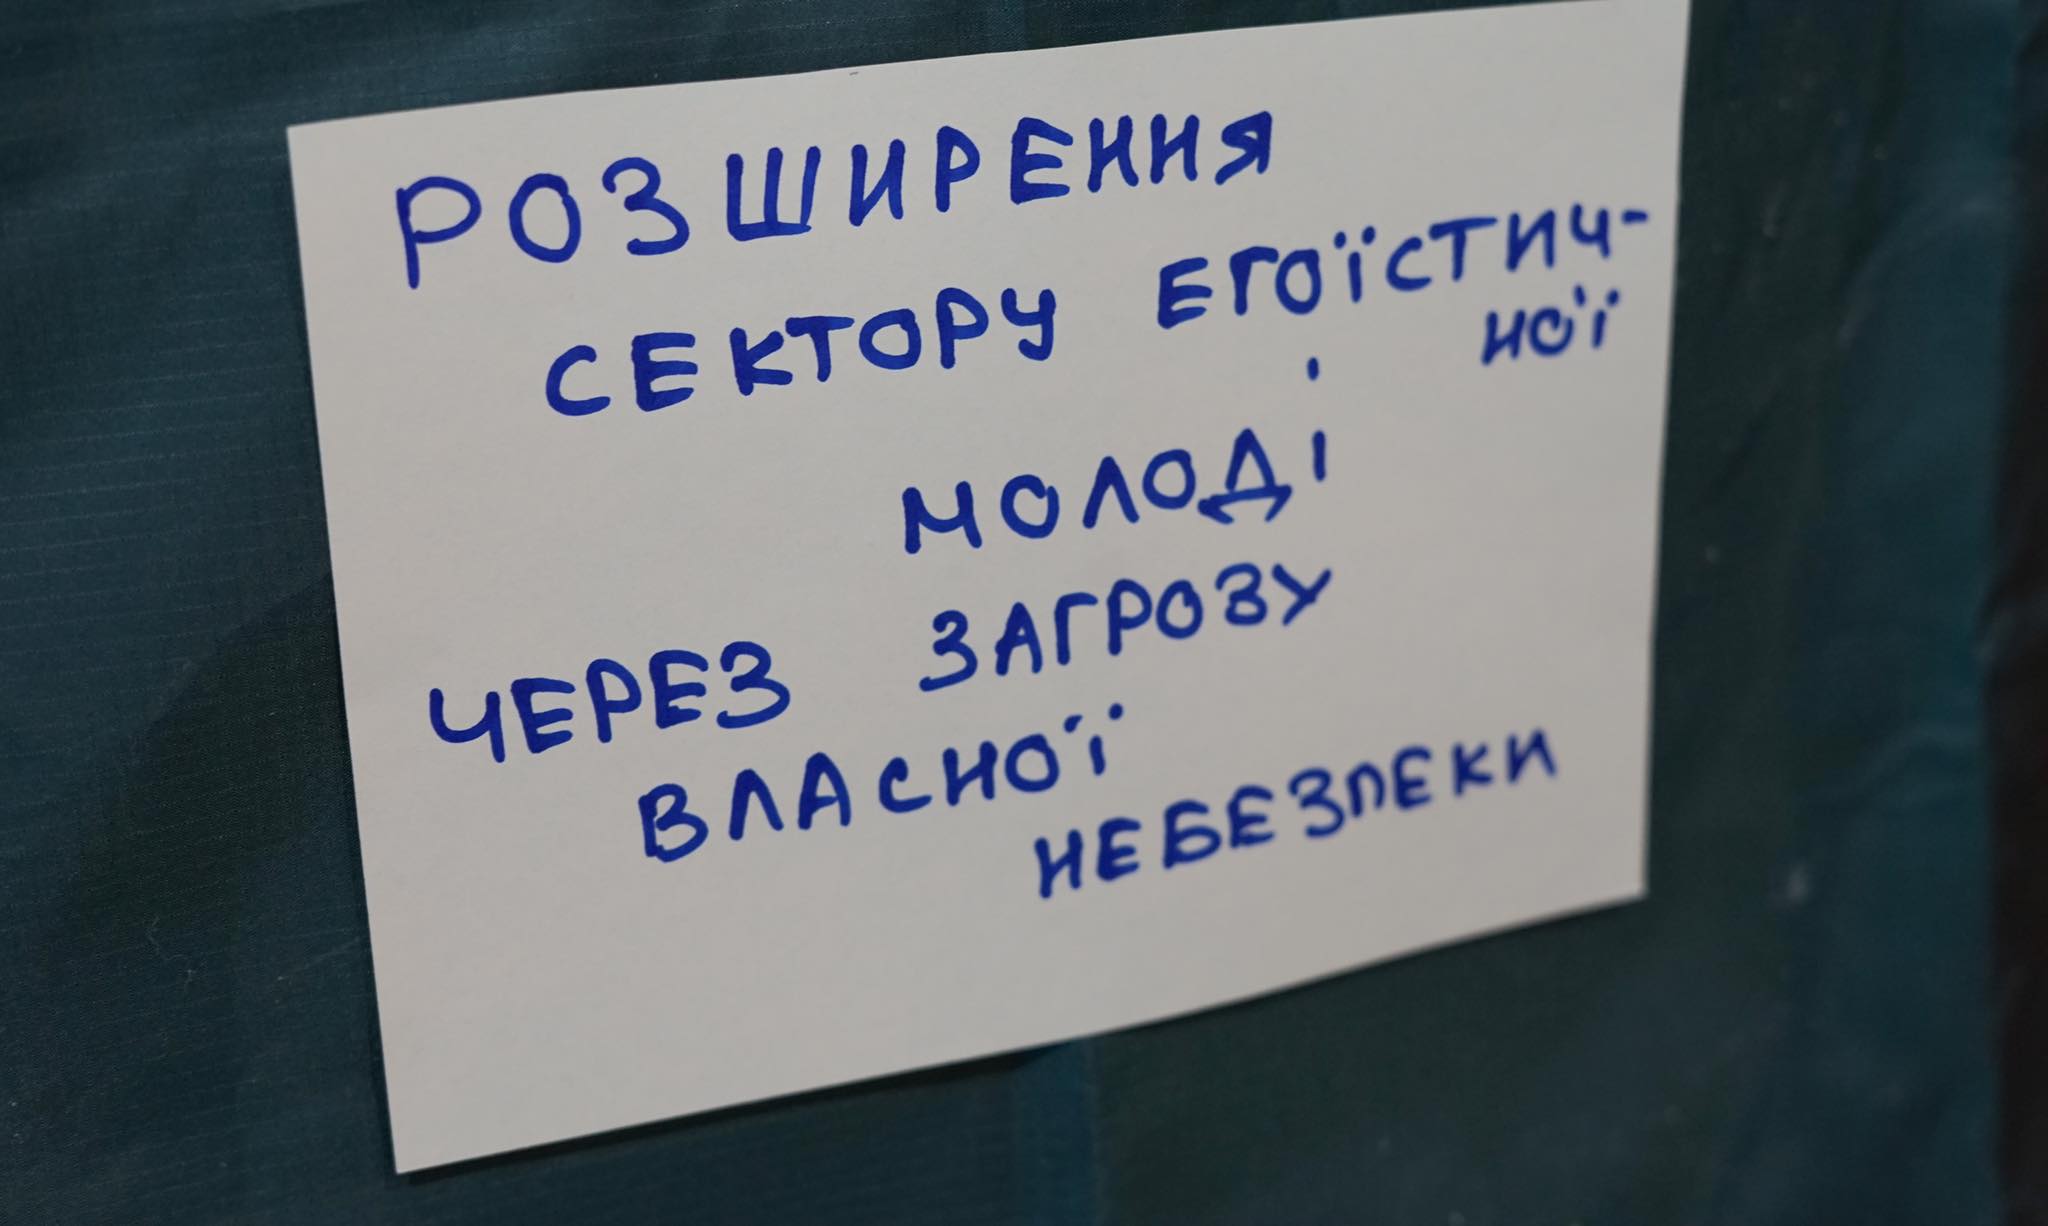 РОЗШИРЕННЯ
СЕКТОРУ ЕГОЇСТИЧ-
НОЇ
МОЛОДІ
ЧЕРЕЗ ЗАГРОЗУ
ВЛАСНОЇ
НЕБЕЗПЕКИ